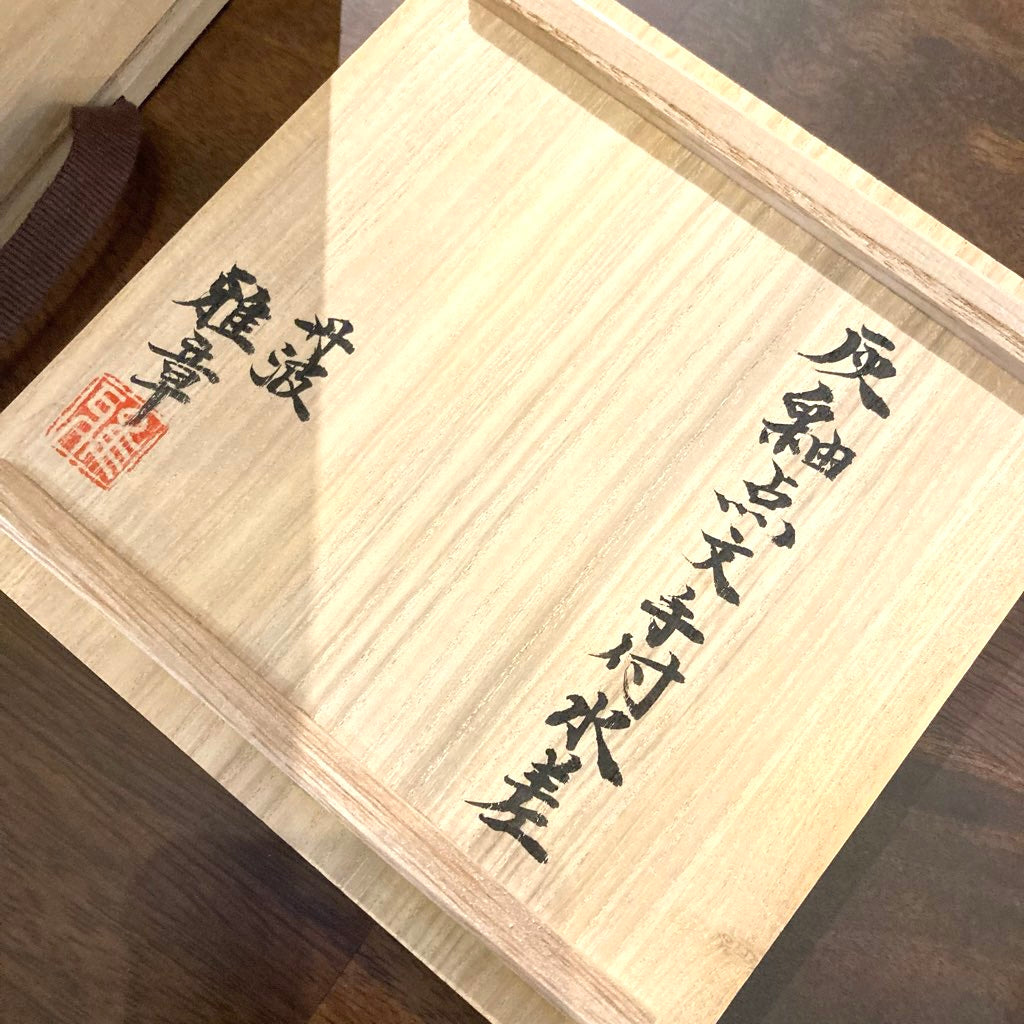 灰釉点文手付水差
丹波
雅章